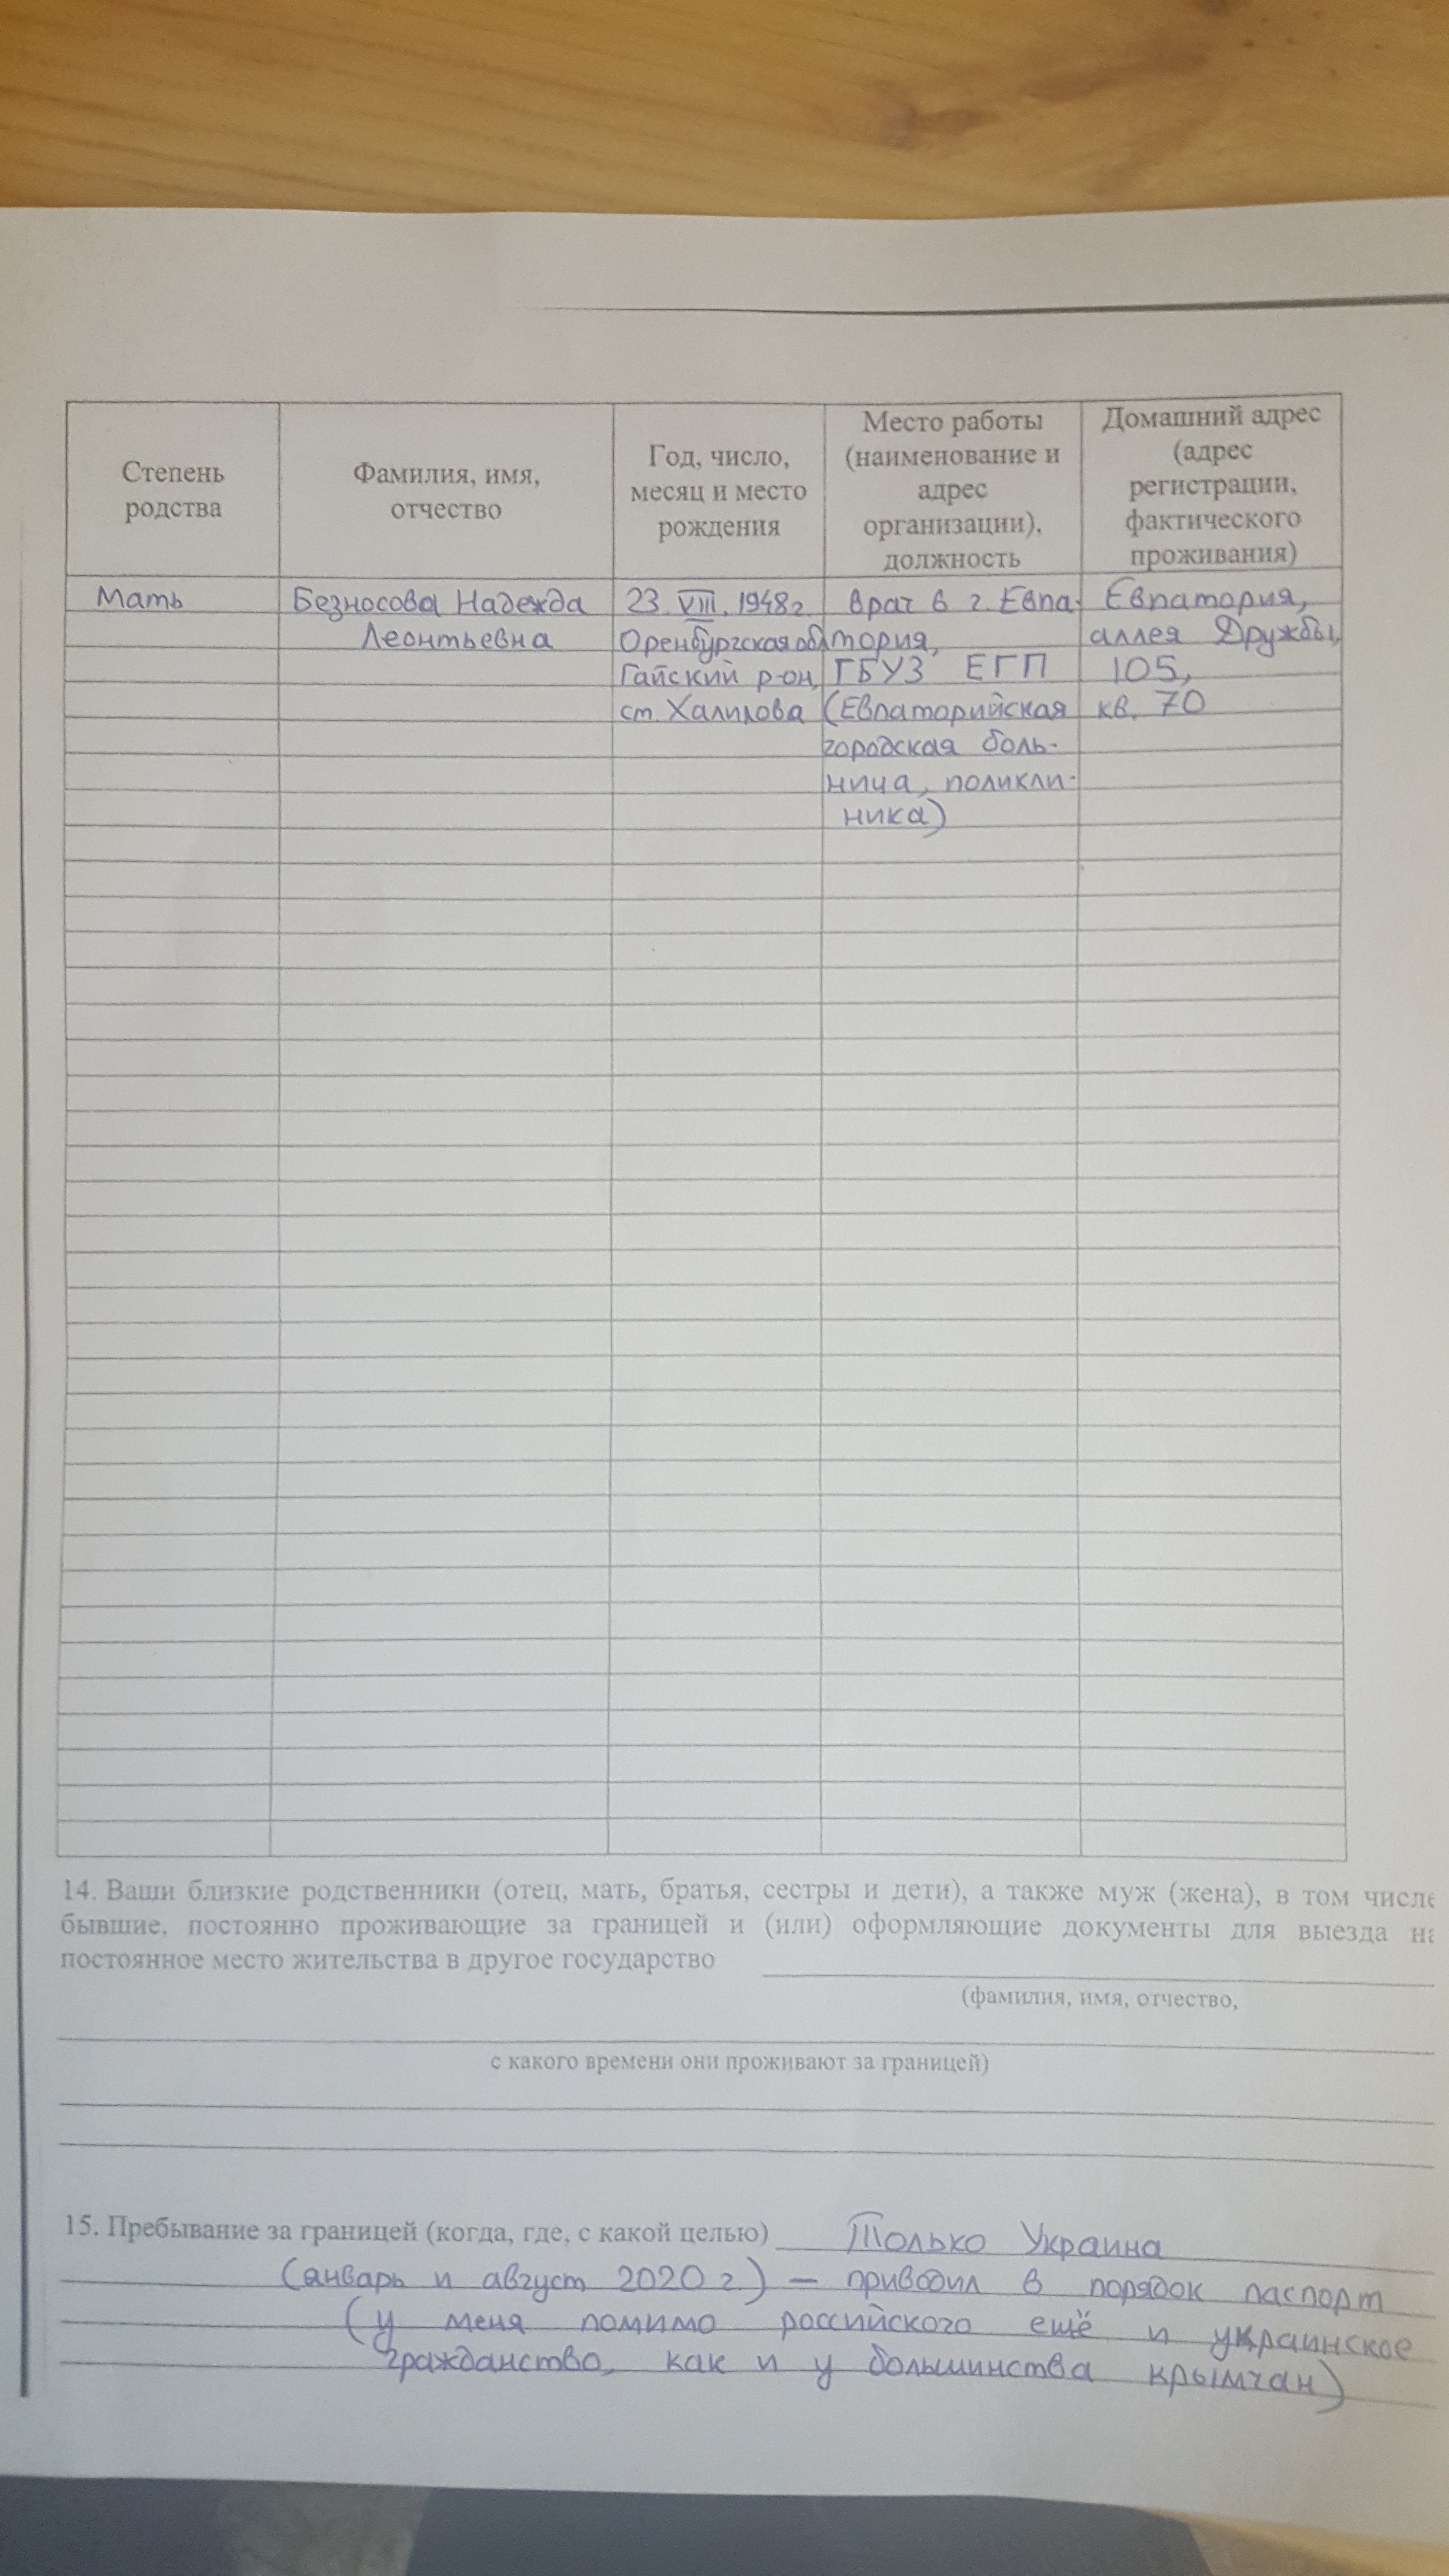 Степень родства
Фамилия, имя, отчество
Год, число, месяц и место рождения
Место работы (наименование и адрес организации), должность
Домашний адрес (адрес регистрации, фактического проживания)
Мать Безносова Надежда 23. VIII. 1948 г. врач в г. Евпа- Евпатория,
Леонтьевна Оренбургская обл тория, аллея Дружбы,
Гайский р-он, ГБУЗ ЕГП 105,
ст. Халилова (Евпаторийская кв. 70
городская боль-
ница, поликли-
ника)
14. Ваши близкие родственники (отец, мать, братья, сестры и дети), а также муж (жена), в том числе
бывшие, постоянно проживающие за границей и (или) оформляющие документы для выезда на
постоянное место жительства в другое государство
(фамилия, имя, отчество,
с какого времени они проживают за границей)
15. Пребывание за границей (когда, где, с какой целью) Только Украина
(январь и август 2020 г.) — приводил в порядок паспорт
(у меня помимо российского ещё и украинское
гражданство, как и у большинства крымчан)